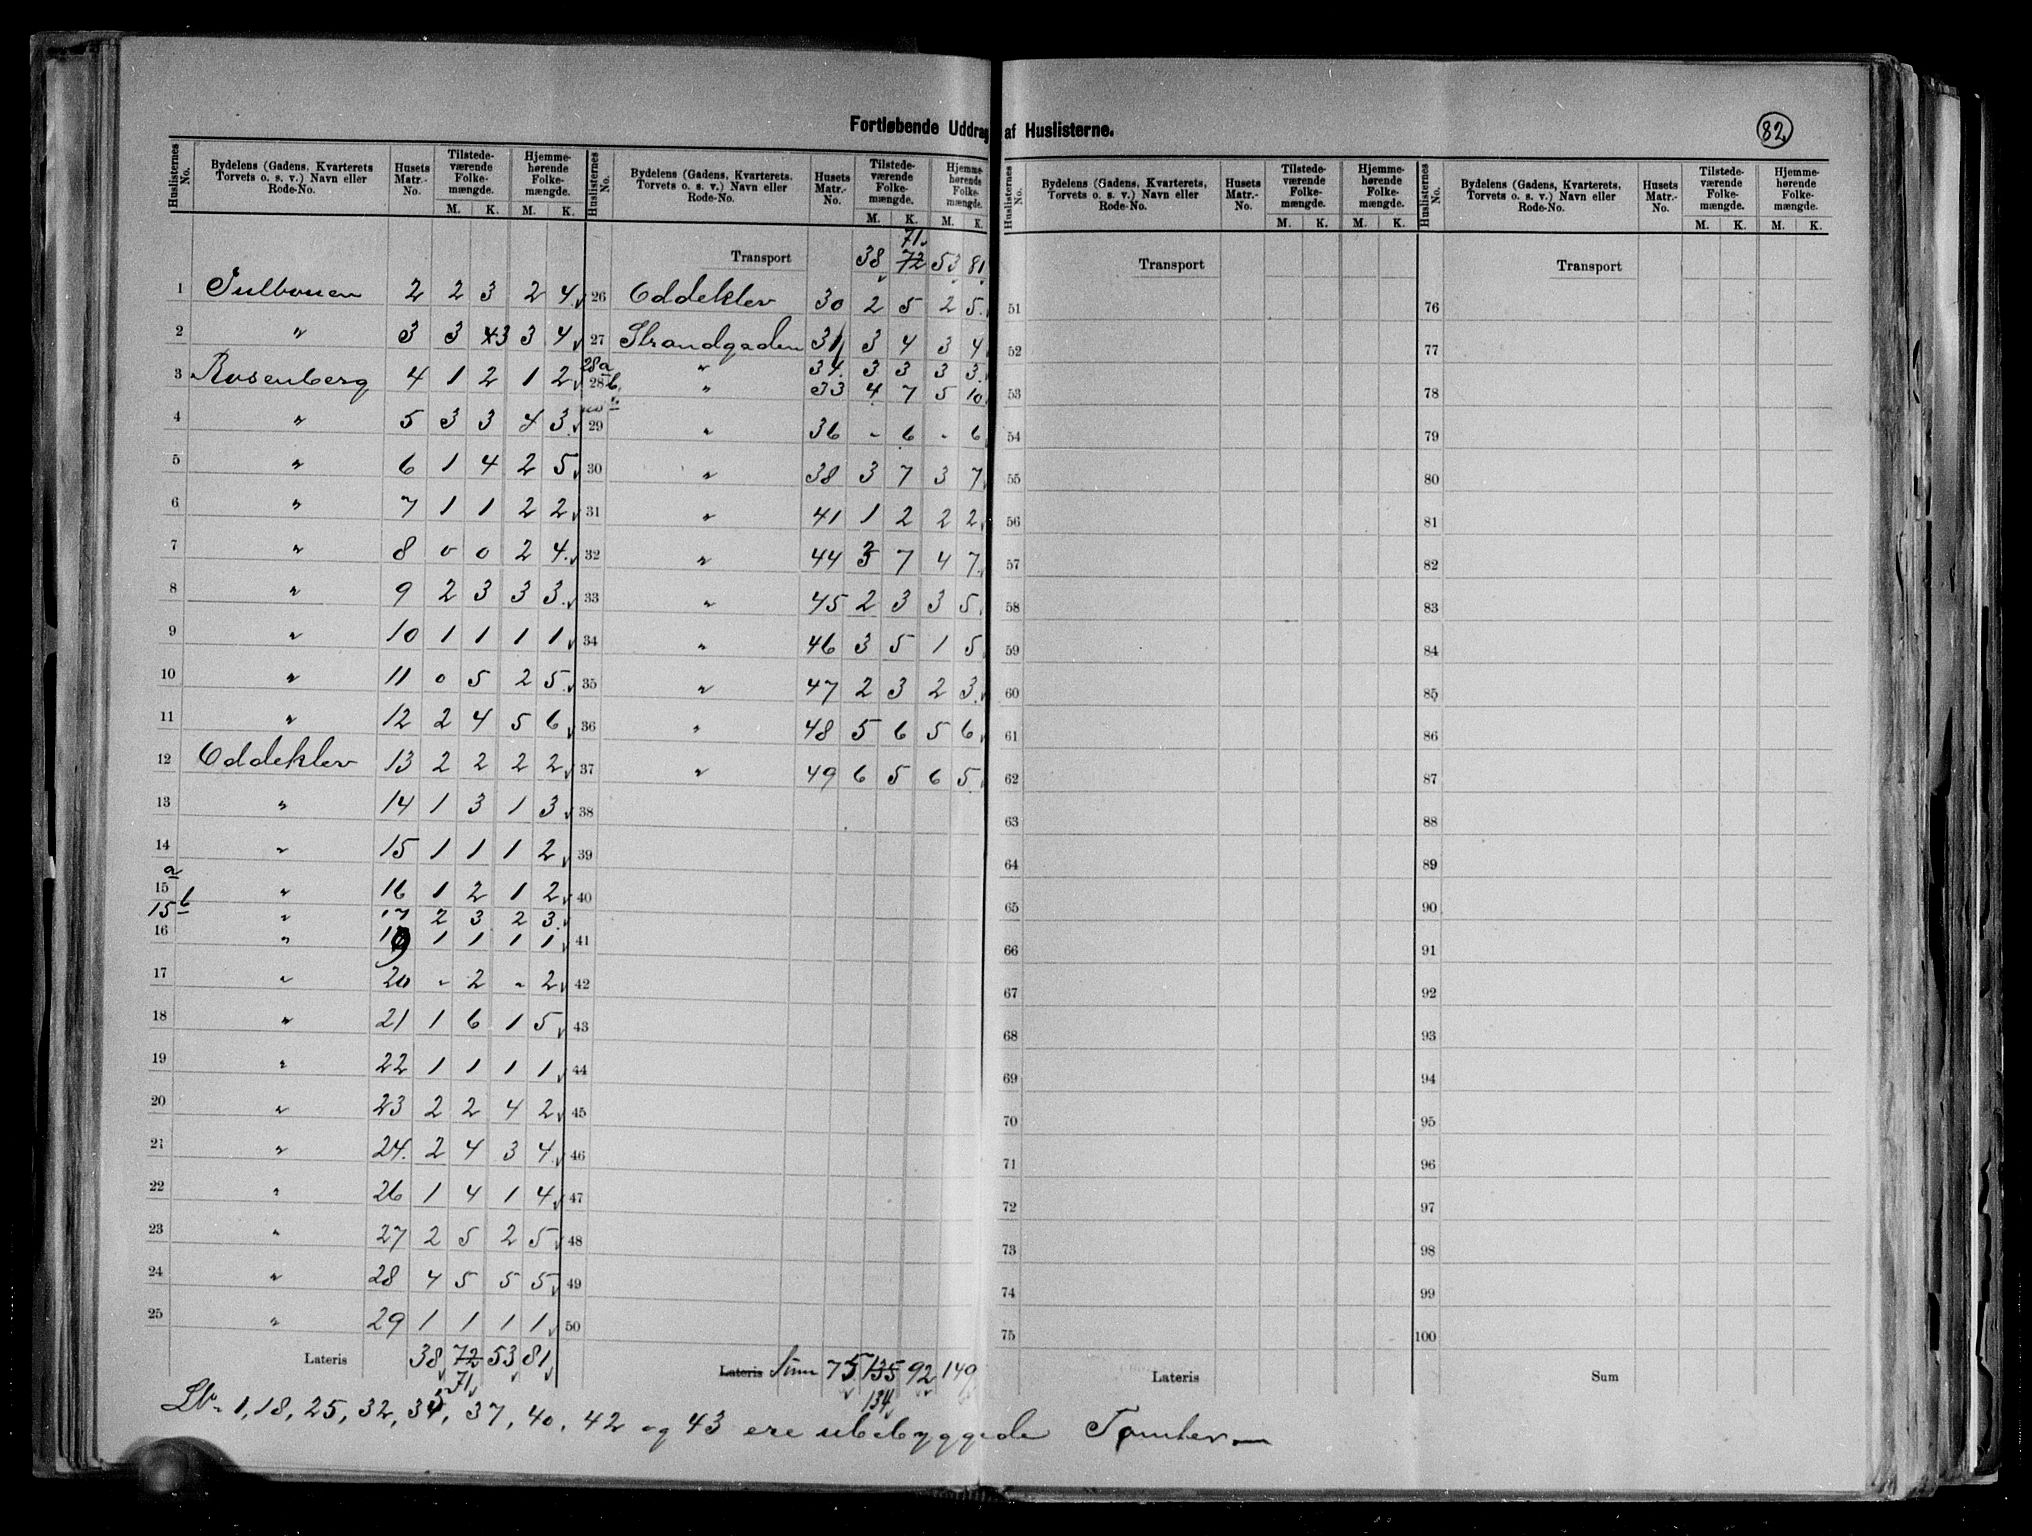 Fortløbende Uddrag af Huslisterne.
82
Huslisternes No. Bydelens (Gadens, Kvarterets Torvets o. s. v.) Navn eller Rode-No. Husets Matr.-No. Tilstedeværende Folkemængde. M. K. Hjemmehørende Folkemængde. M. K.
1 2 2 3 2 4
2 " 3 3 4 3 3 4
3 Rosenberg 4 1 2 1 2
4 " 5 3 3 4 3
5 " 6 1 4 2 5
6 " 7 1 1 2 2
7 " 8 0 0 2 4
8 " 9 2 3 3 3
9 " 10 1 1 1 1
10 " 11 0 5 2 5
11 " 12 2 4 5 6
12 Oddeklev 13 2 2 2 2
13 " 14 1 3 1 3
14 " 15 1 1 1 2
15 a " 16 1 2 1 2
15 b " 17 2 3 2 3
16 " 19 1 1 1 1
17 " 20 - 2 - 2
18 " 21 1 6 1 5
19 " 22 1 1 1 1
20 " 23 2 2 4 2
21 " 24. 2 4 3 4
22 " 26 1 4 1 4
23 " 27 2 5 2 5
24 " 28 4 5 5 5
25 " 29 1 1 1 1
Lateris 38 72 53 81
71
Huslisternes No. Bydelens (Gadens, Kvarterets. Torvets o. s. v.) Navn eller Rode-No. Husets Matr.-No. Tilstedeværende Folkemængde. M. K. Hjemmehørende Folkemængde. M. K.
71
Transport 38 72 53 81
26 Oddeklev 30 2 5 2 5
27 Strandgaden 31 3 4 3 4
28a " 34. 3 3 3 3
28 b " 33 4 7 5 10
29 " 36 - 6 - 6
30 " 38 3 7 3 7
31 " 41 1 2 2 2
32 " 44 3 7 4 7
33 " 45 2 3 3 5
34 " 46 3 5 1 5
35 " 47 2 3 2 3
36 " 48 5 6 5 6
37 " 49 6 5 6 5
38
39
40
41
42
43
44
45
46
47
48
49
50
Lateris Sum 75 135 92 149
134
Huslisternes No. Bydelens (Gadens, Kvarterets, Torvets o. s. v.) Navn eller Rode-No. Husets Matr.-No. Tilstedeværende Folkemængde. M. K. Hjemmehørende Folkemængde. M. K.
Transport
51
52
53
54
55
56
57
58
59
60
61
62
63
64
65
66
67
68
69
70
71
72
73
74
75
Lateris
Huslisternes No. Bydelens (Gadens, Kvarterets, Torvets o. s. v.) Navn eller Rode-No. Husets Matr.-No. Tilstedeværende Folkemængde. M. K. Hjemmehørende Folkemængde. M. K.
Transport
76
77
78
79
80
81
82
83
84
85
86
87
88
89
90
91
92
93
94
95
96
97
98
99
100
Sum
1, 18, 25, 32, 35, 37, 40, 42 og 43 ere ubebyggede Tomter